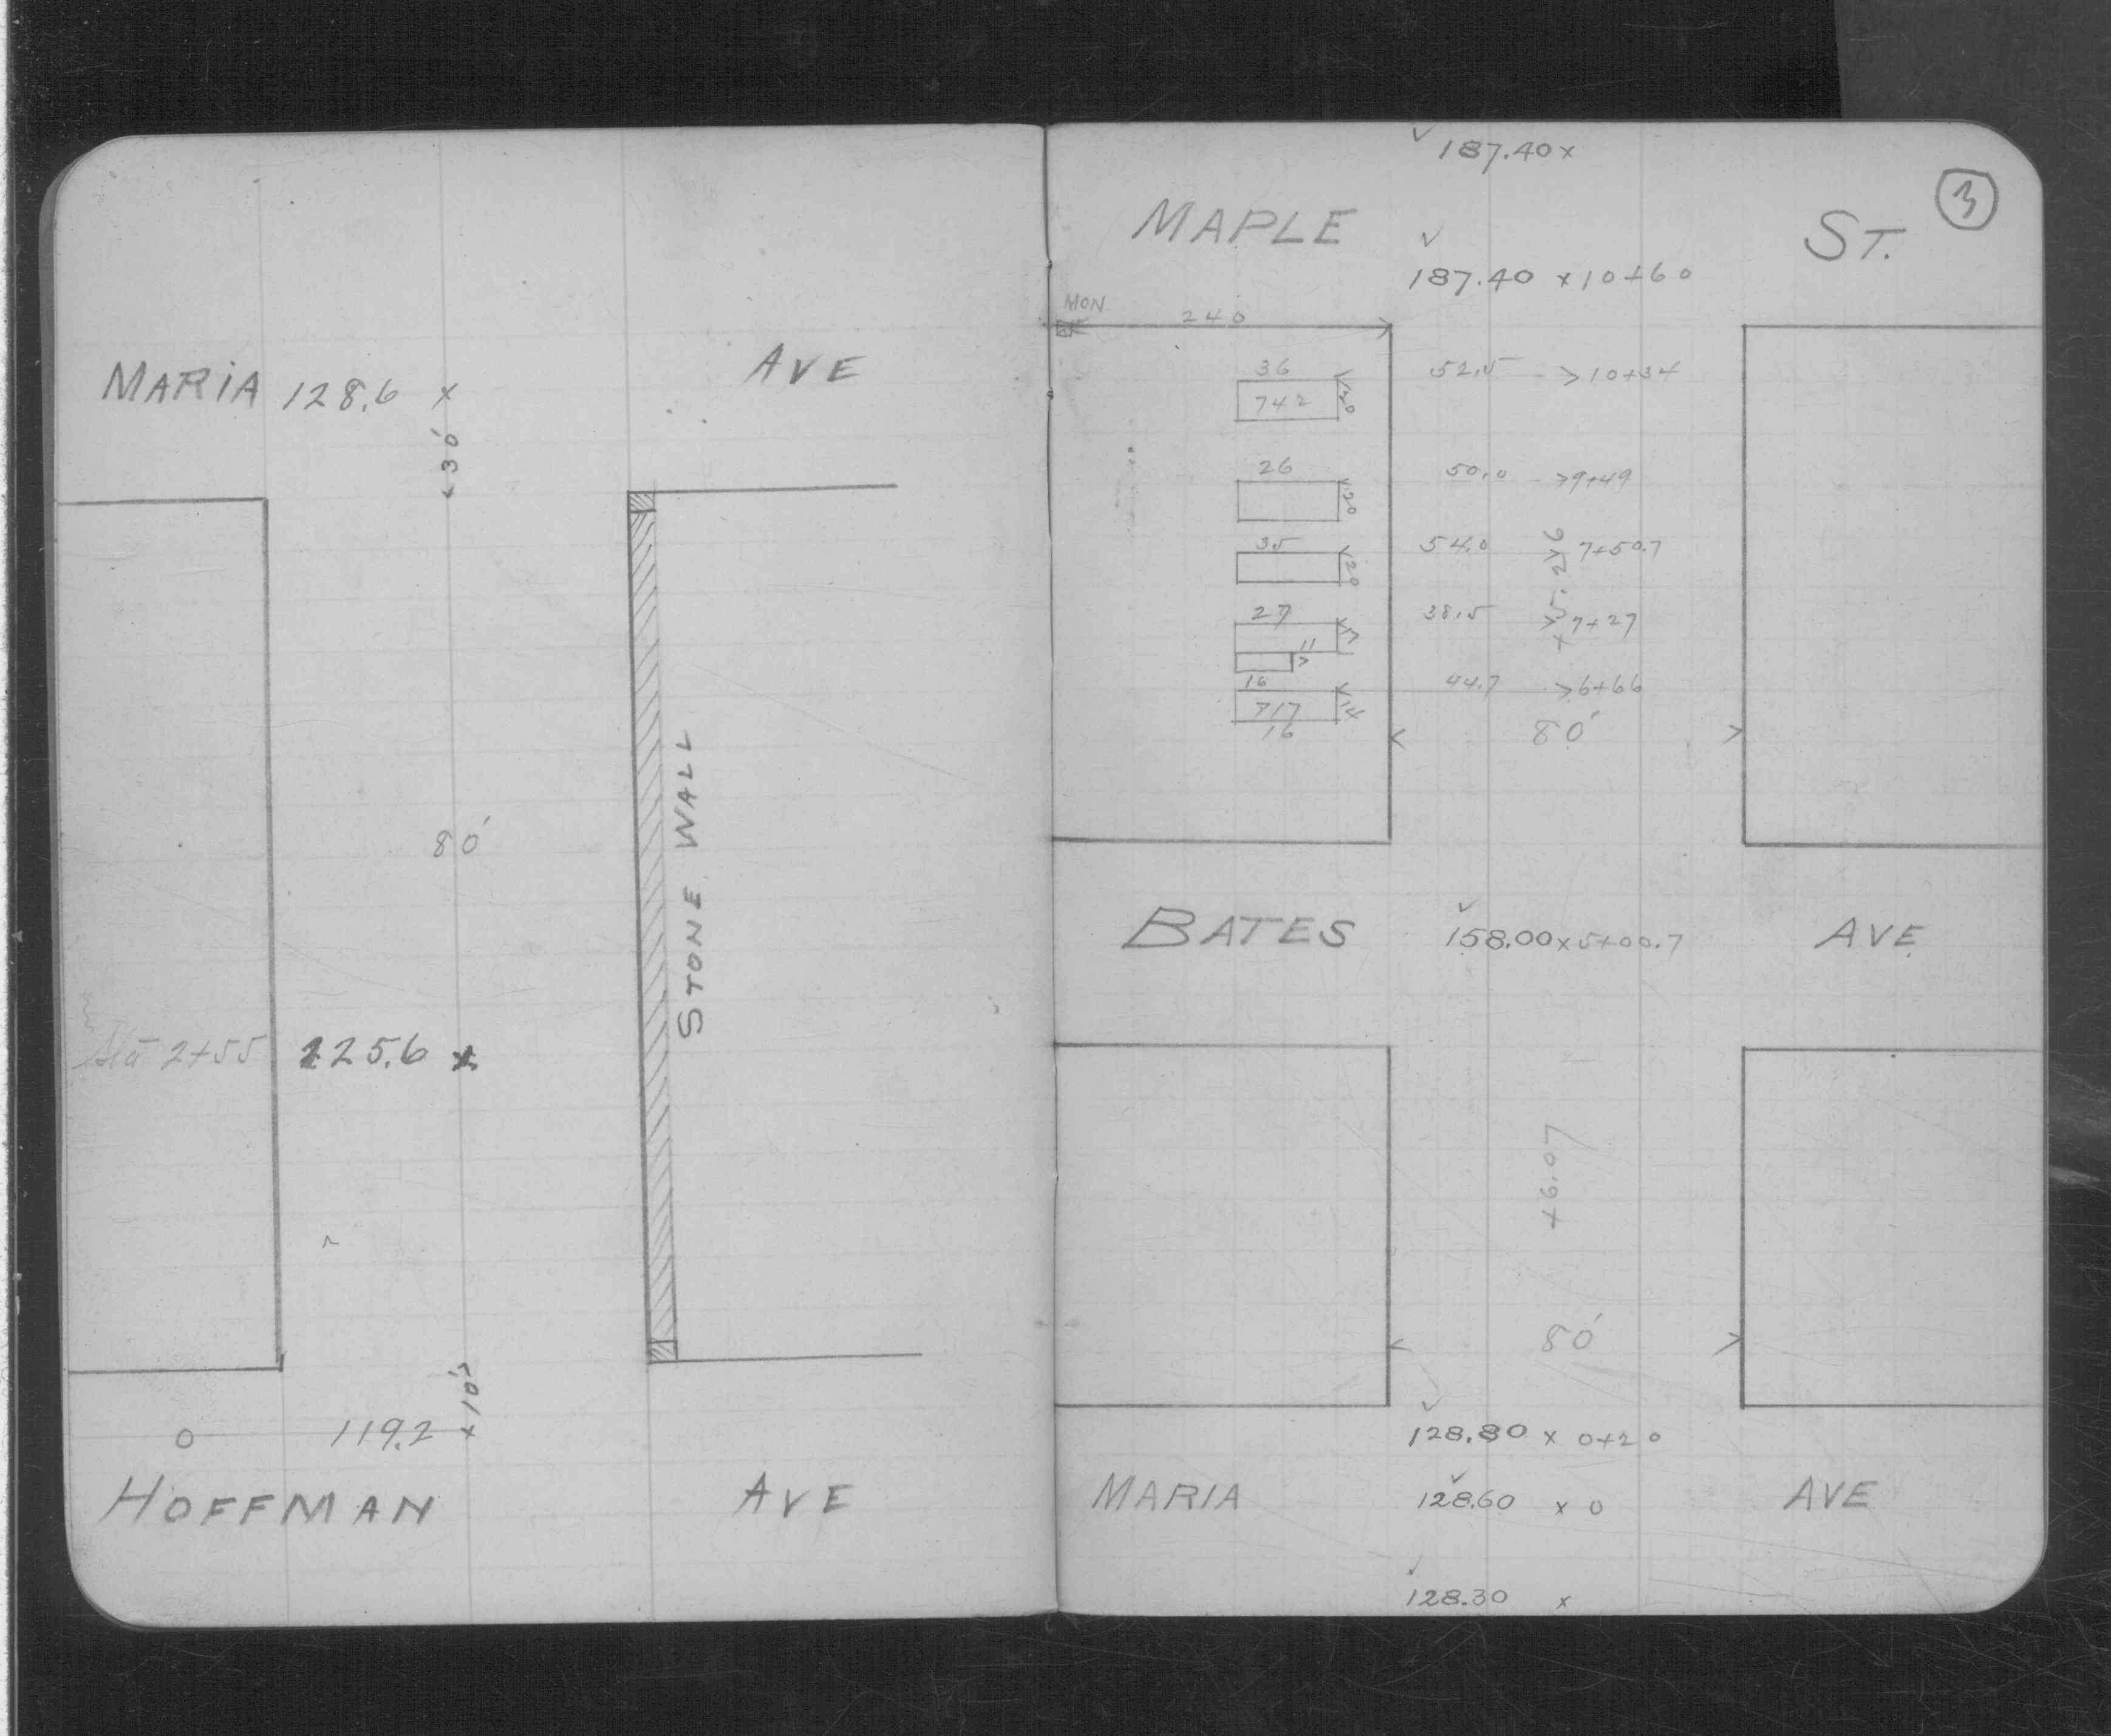 MARIA 128.6 x AVE
30'
80'
STONE WALL
Sta 2+55 125.6 x
10'
0 119.2 x
HOFFMAN AVE
187.40 x
3
MAPLE ST.
187.40 x 10+60
MON
240
36 52.5 10+34
742 20
26 50.0 9+49
20
35 54.0 7+50.7
20
+5.276
27 38.5 7+27
17
11
16 44.7 6+66
717 14
16
80'
BATES 158.00 x 5+00.7 AVE.
+6.07
80'
128.80 x 0+20
MARIA 128.60 x 0 AVE
128.30 x